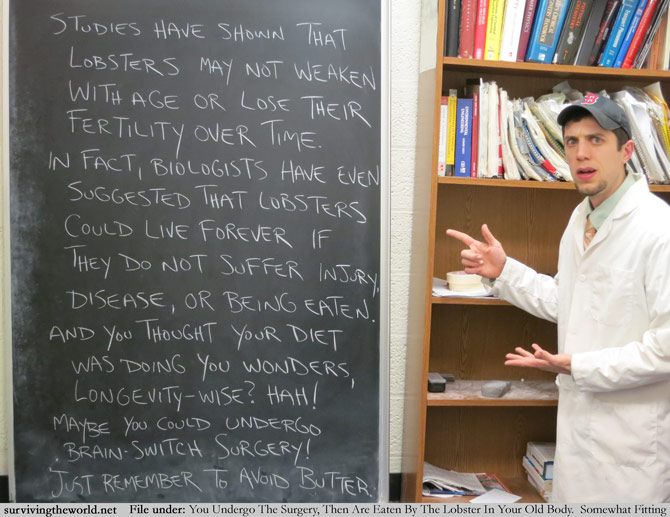 STUDIES HAVE SHOWN THAT
LOBSTERS MAY NOT WEAKEN
WITH AGE OR LOSE THEIR
FERTILITY OVER TIME.
IN FACT, BIOLOGISTS HAVE EVEN
SUGGESTED THAT LOBSTERS
COULD LIVE FOREVER IF
THEY DO NOT SUFFER INJURY,
DISEASE, OR BEING EATEN.
AND YOU THOUGHT YOUR DIET
WAS DOING YOU WONDERS,
LONGEVITY-WISE? HAH!
MAYBE YOU COULD UNDERGO
BRAIN-SWITCH SURGERY!
JUST REMEMBER TO AVOID BUTTER.
survivingtheworld.net File under: You Undergo The Surgery, Then Are Eaten By The Lobster In Your Old Body. Somewhat Fitting